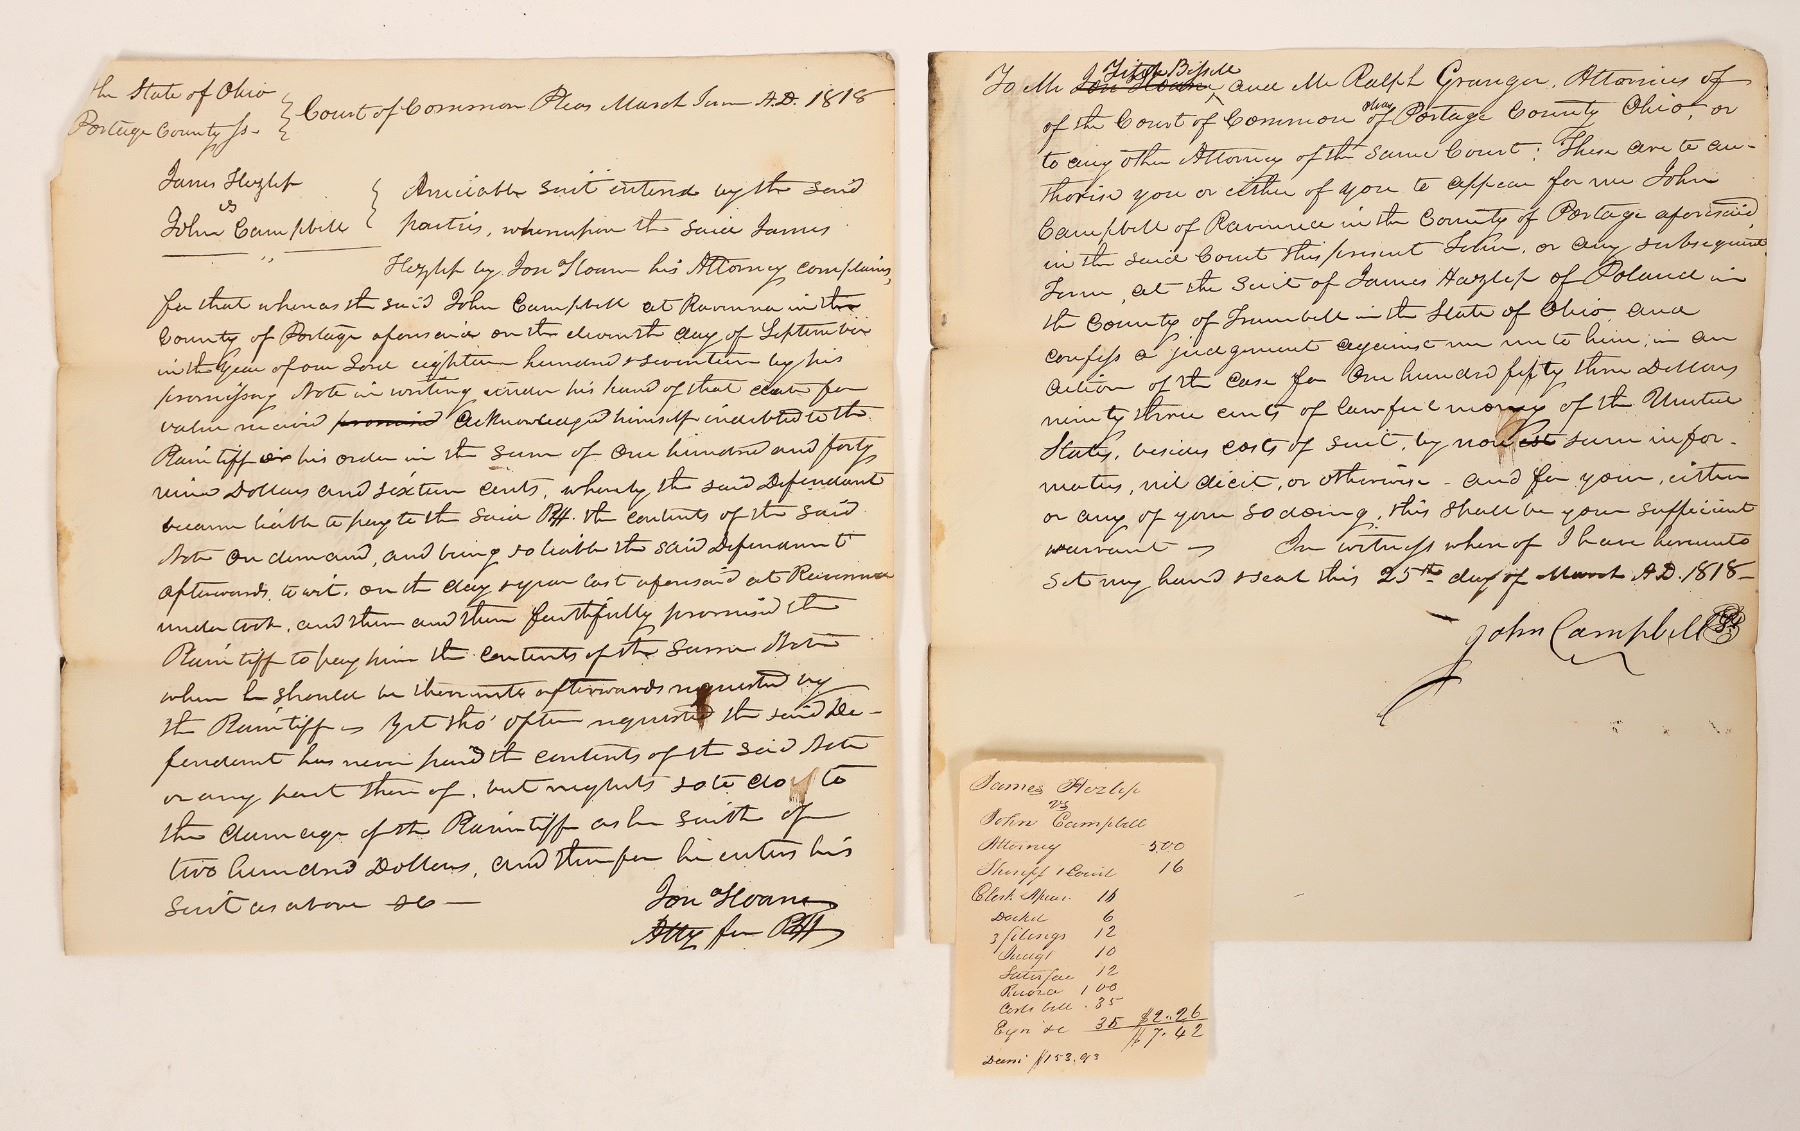 the State of Ohio
Portage County ss.
Court of Common Pleas March Term A.D. 1818
James Hezlep
vs
John Campbell
Amicable suit entered by the said
parties, whereupon the said James
Hezlep by Jon Sloane his Attorney complains,
for that whereas the said John Campbell at Ravenna in the
County of Portage aforesaid on the eleventh day of September
in the year of our Lord eighteen hundred & seventeen by his
promissory Note in writing under his hand of that date for
value received promised acknowledged himself indebted to the
Plaintiff or his order in the sum of one hundred and forty
nine Dollars and sixteen cents, whereby the said Defendant
became liable to pay to the said Plff. the contents of the said
Note on demand, and being so liable the said Defendant
afterwards, to wit, on the day & year last aforesaid at Ravenna
undertook, and then and there faithfully promised the
Plaintiff to pay him the contents of the same Note
when he should be thereunto afterwards requested by
the Plaintiff — Yet tho' often requested the said De-
fendant has never paid the contents of the said Note
or any part thereof, but neglects so to do, to
the damage of the Plaintiff as he saith of
two hundred Dollars, and therefore he enters his
suit as above &c —
Jon Sloane
Atty for Plff
Fitch Bissell
To Mr Jon Sloane, and Mr Ralph Granger, Attornies of
of the Court of Common Pleas of Portage County Ohio, or
to any other Attorney of the same Court: These are to au-
thorise you or either of you to appear for me John
Campbell of Ravenna in the County of Portage aforesaid,
in the said Court this present Term, or any subsequent
Term, at the suit of James Hazlep of Poland in
the County of Trumbell in the State of Ohio, and
confess a judgement against me unto him, in an
action of the case for One hundred fifty three Dollars
ninety three cents of lawful money of the United
States, besides costs of suit, by non est sum infor-
matus, nil dicit, or otherwise - and for your, either
or any of your so doing, this shall be your sufficient
warrant — In witness whereof I have hereunto
set my hand & seal this 25th day of March A.D. 1818 —
John Campbell
James Hezlep
vs
John Campbell
Attorney 5.00
Sheriff & Court 16
Clerk Apear. 16
Docket 6
3 filings 12
Judgt 10
Satisfac 12
Record 1 00
Costs bill . 35
35 $2..26
$7.42
Dam $153.93